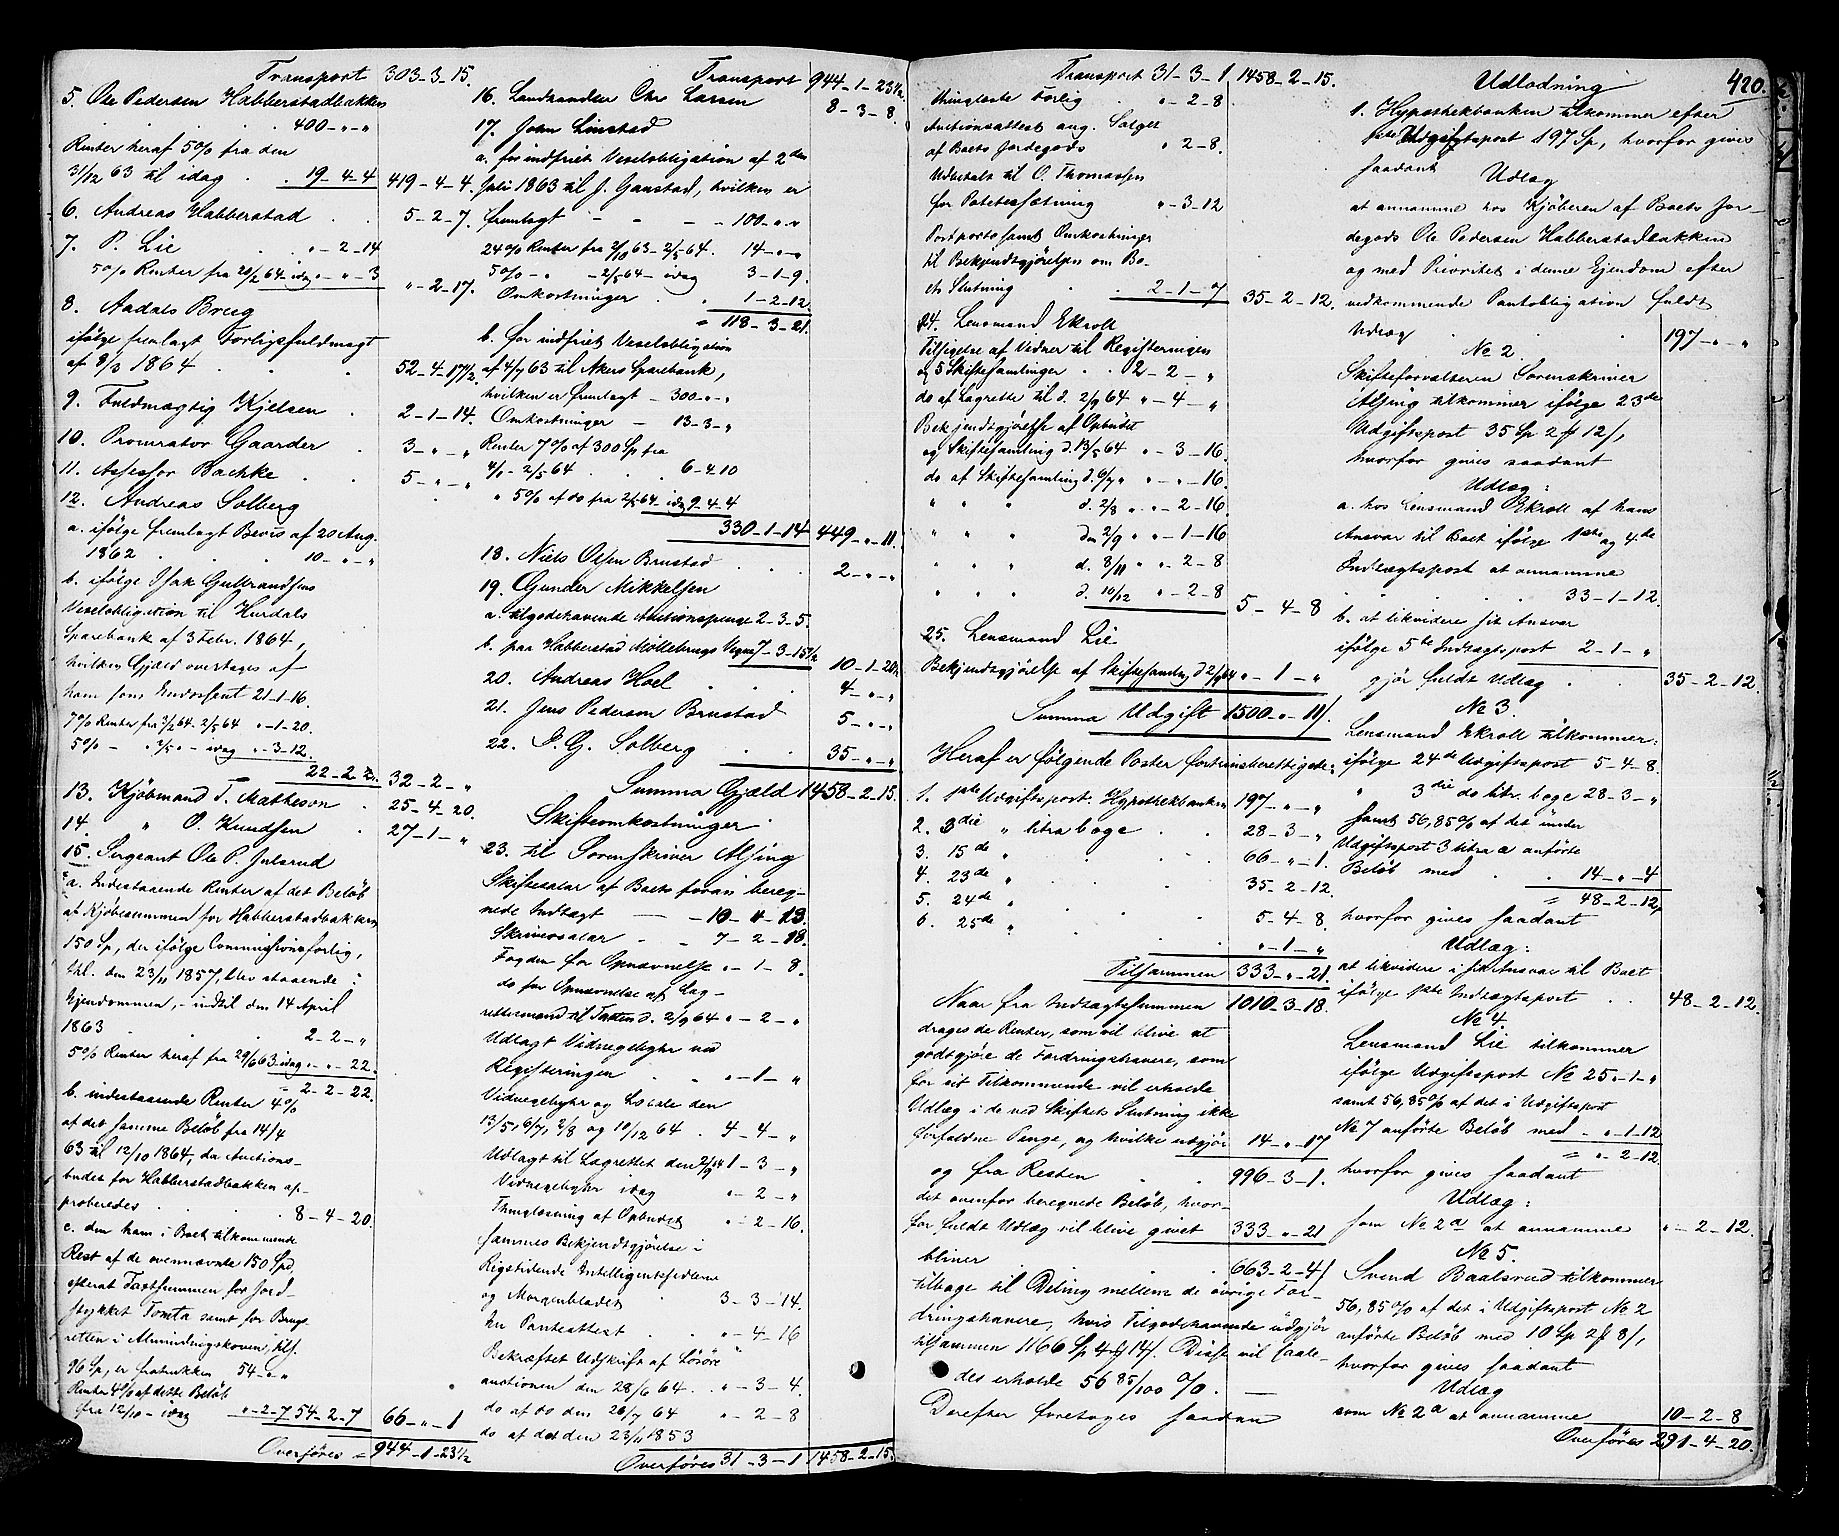 Transport 303-3-15.
5. Ole Pedersen Habberstadbakken
400-"-"
Renter heraf 5% fra den
31/12 63 til idag . . 19-4-4 419-4-4.
6. Andreas Habberstad . . 5-2-7.
7. P. Lie . "-2-14
5% Renter fra 20/2 64 idag "-"-3 "-2-17.
8. Aadals Brug
ifølge fremlagt Forligsfuldmagt
af 8/3 1864 . . . 52-4-17 1/2.
9. Fuldmægtig Kjelsen . 2-1-14.
10. Procurator Gaarder . 3-"-"
11. Assessor Bachke . . 5-"-"
12. Andreas Solberg
a. ifølge fremlagt Bevis af 20 Aug.
1862 . . 10-"-"
b. ifølge Isak Gulbrandsens
Vexelobligation til Hurdals
Sparebank af 3 Febr. 1864,
hvilken Gjæld overtages af
ham som Endossent 21-1-16.
7% Renter fra 3/2 64-2/5 64 "-1-20.
5% - " 2/5 " - idag "-3-12.
22-2-2. 32-2-"
13. Kjøbmand T. Matheson . 25-4-20.
14. " O. Knudsen . 27-1-"
15. Sergeant Ole P. Julsrud
a. Indestaaende Renter af det Beløb
af Kjøbesummen for Habberstadbakken
150 Sp, der ifølge Commissionsforlig,
thl. den 23/11 1857, blev staaende i
Ejendommen, - indtil den 14 April
1863 . . . 2-2-"
5% Renter heraf fra 29/6 63 idag "-"-22.
= 2-2-22.
b. indestaaende Renter 4%
af det samme Beløb fra 14/4
63 til 12/10 1864, da Auctions-
budet for Habberstadbakken ap-
proberedes . . . 8-4-20.
c. den ham i Boet tilkommende
Rest af de ovennævnte 150 Spd,
efterat Taxtsummen for Jord-
stykket Tomta samt for Brugs-
retten i Almindingskoven, tils.
96 Sp, er fratrukken 54-"-"
Renter 4% af dette Beløb
fra 12/10 - idag "-2-7 54-2-7 66-"-1
Overføres = 944-1-23 1/2
Transport 944-1-23 1/2.
16. Landhandler Chr. Larsen 8-3-8.
17. John Linstad
a. for indfriet Vexelobligation af 2den
Juli 1863 til J. Ganstad, hvilken er
fremlagt - - - 100-"-"
24% Renter fra 2/10 63-2/5 64. 14-"-"
5% - " -2/5 64 - idag 3-1-9.
Omkostninger . . 1-2-12.
= 118-3-21.
b. for indfriet Vexelobligation
af 4/7 63 til Akers Sparebank,
hvilken er fremlagt - 300-"-"
Omkostninger - 13-3-"
Renter 7% af 300 Sp fra
4/1 - 2/5 64 . . 6-4-10
" 5% af do fra 2/5 64 idag 9-4-4
330-1-14 449-"-11.
18. Niels Olsen Brustad . . . 2-"-"
19. Gunder Mikkelsen
a. tilgodehavende Auctionspenge 2-3-5.
b. paa Habberstad Møllebrugs Vegne 7-3-15 1/2 10-1-20 1/2
20. Andreas Hoel . . . 4-"-"
21. Jens Pederson Brustad 5-"-"
22. I. G. Solberg . . 35-"-"
Summa Gjæld 1458-2-15.
Skifteomkostninger.
23. til Sorenskriver Alsing
Skiftesalar af Boets foran bereg-
nede Indtægt - - 10-"-13.
Skriversalar . . 7-2-18.
Fogden for Opnævnelse "-1-8.
do for Opnævnelse af Lag-
rettesmænd til Taxten d. 2/9 64 "-2-"
Udlagt Vidnegebyhr ved
Registeringen . . "-1-"
Vidnegebyhr og Locale den
13/5, 6/7, 2/8 og 10/12 64 . 4-4-"
Udlagt til Lagrettet den 2/9 64 1-3-"
Vidnegebyhr idag "-2-"
Thinglæsning af Opbudet "-2-16.
Sammes Bekjendtgjørelse i
Rigstidende Intelligentssedlerne
og Morgenbladet . 3-3-14.
for Panteattest . . "-4-16
Bekræftet Udskrift af Løsøre
auctionen den 28/6 64 . . "-3-4.
do af do den 26/7 64 "-2-8
do af det den 23/11 1853
Overføres 31-3-1 1458-2-15.
Transport 31-3-1 1458-2-15.
thinglæste Forlig . "-2-8.
Auctionsattest ang. Salget
af Boets Jordegods "-2-8.
Udbetalt til O. Thomassen
for Potetessætning "-3-12
Postporto samt Omkostninger
til Bekjendtgjørelsen om Bo-
ets Slutning . . 2-1-7 35-2-12.
24. Lensmand Ekroll
Tilsigelse af Vidner til Registeringen
og 5 Skiftesamlinger . . 2-2-"
do af Lagrette til d. 2/9 64 "-4-"
Bekjendtgjørelse af Opbudet
og Skiftesamling d. 13/5 64 "-3-16.
do af Skiftesamling d. 6/7 " "-"-16.
" " " d. 2/8 " "-2-16.
" " " den 2/9 " "-1-16
" " " d. 8/11 " "-2-8
" " " d. 10/12 "-2-8 5-4-8
25. Lensmand Lie
Bekjendtgjørelse af Skiftesamling d 2/9 64 "-1-"
Summa Udgift 1500-"-11/.
Heraf er følgende Poster fortrinsberettigede:
1. 1ste Udgiftspost. Hypothekbanken 197-"-"
2. 3die " litra b og e . . 28-3-"
3. 15de " . . . 66-"-1.
4. 23de " . . . 35-2-12.
5. 24de " . . . 5-4-8.
6. 25de " . . . "-1-"
Tilsammen 333-"-21.
Naar fra Indtægtssummen 1010-3-18.
drages de Renter, som vil blive at
godtgjøre de Fordringshavere, som
for sit Tilkommende vil erholde
Udlæg i de ved Skiftets Slutning ikke
forfaldne Penge, og hvilke udgjør 14-"-17
og fra Resten . . 996-3-1.
det ovenfor beregnede Beløb, hvor-
for fuldt Udlæg vil blive givet 333-"-21
bliver . 663-2-4/
tilbage til Deling mellem de øvrige For-
dringshavere, hvis Tilgodehavende udgjør
tilsammen 1166 Sp 4 ₰ 14/. Disse vil saale-
des erholde 56 85/100 %.
Derefter foretages saadan
420.
Udlodning
1. Hypothekbanken tilkommer efter
1ste Udgiftspost 197 Sp, hvorfor gives
saadant
Udlæg
at annamme hos Kjøberen af Boets Jor-
degods Ole Pedersen Habberstadbakken
og med Prioritet i denne Ejendom efter
vedkommende Pantobligation fuldt
Udlæg . . . 197-"-"
No 2.
Skifteforvalteren Sorenskriver
Alsing tilkommer ifølge 23de
Udgiftspost 35 Sp 2 ₰ 12/,
hvorfor gives saadant
Udlæg:
a. hos Lensmand Ekroll af hans
Ansvar til Boet ifølge 1ste og 4de
Indtægtspost at annamme
. . . 33-1-12.
b. at likvidere sit Ansvar
ifølge 5te Indtægtspost 2-1-"
gjør fuldt Udlæg . . 35-2-12.
No 3.
Lensmand Ekroll tilkommer:
ifølge 24de Udgiftspost 5-4-8.
" 3die do litr. b og e 28-3-"
samt 56,85% af det under
Udgiftspost 3 litra a anførte
Beløb med . . 14-"-4
= 48-2-12,
hvorfor gives saadant
Udlæg:
at likvidere i sit Ansvar til Boet
ifølge 1ste Indtægtspost . . 48-2-12.
No 4.
Lensmand Lie tilkommer
ifølge Udgiftspost No 25 "-1-"
samt 56,85% af det i Udgiftspost
No 7 anførte Beløb med "-1-12
= "-2-12.
hvorfor gives saadant
Udlæg:
som No 2 a at annamme "-2-12.
No 5.
Svend Baalsrud tilkommer
56,85% af det i Udgiftspost No 2
anførte Beløb med 10 Sp 2 ₰ 8/,
hvorfor gives saadant
Udlæg
som No 2 a at annamme 10-2-8
Overføres 291-4-20.